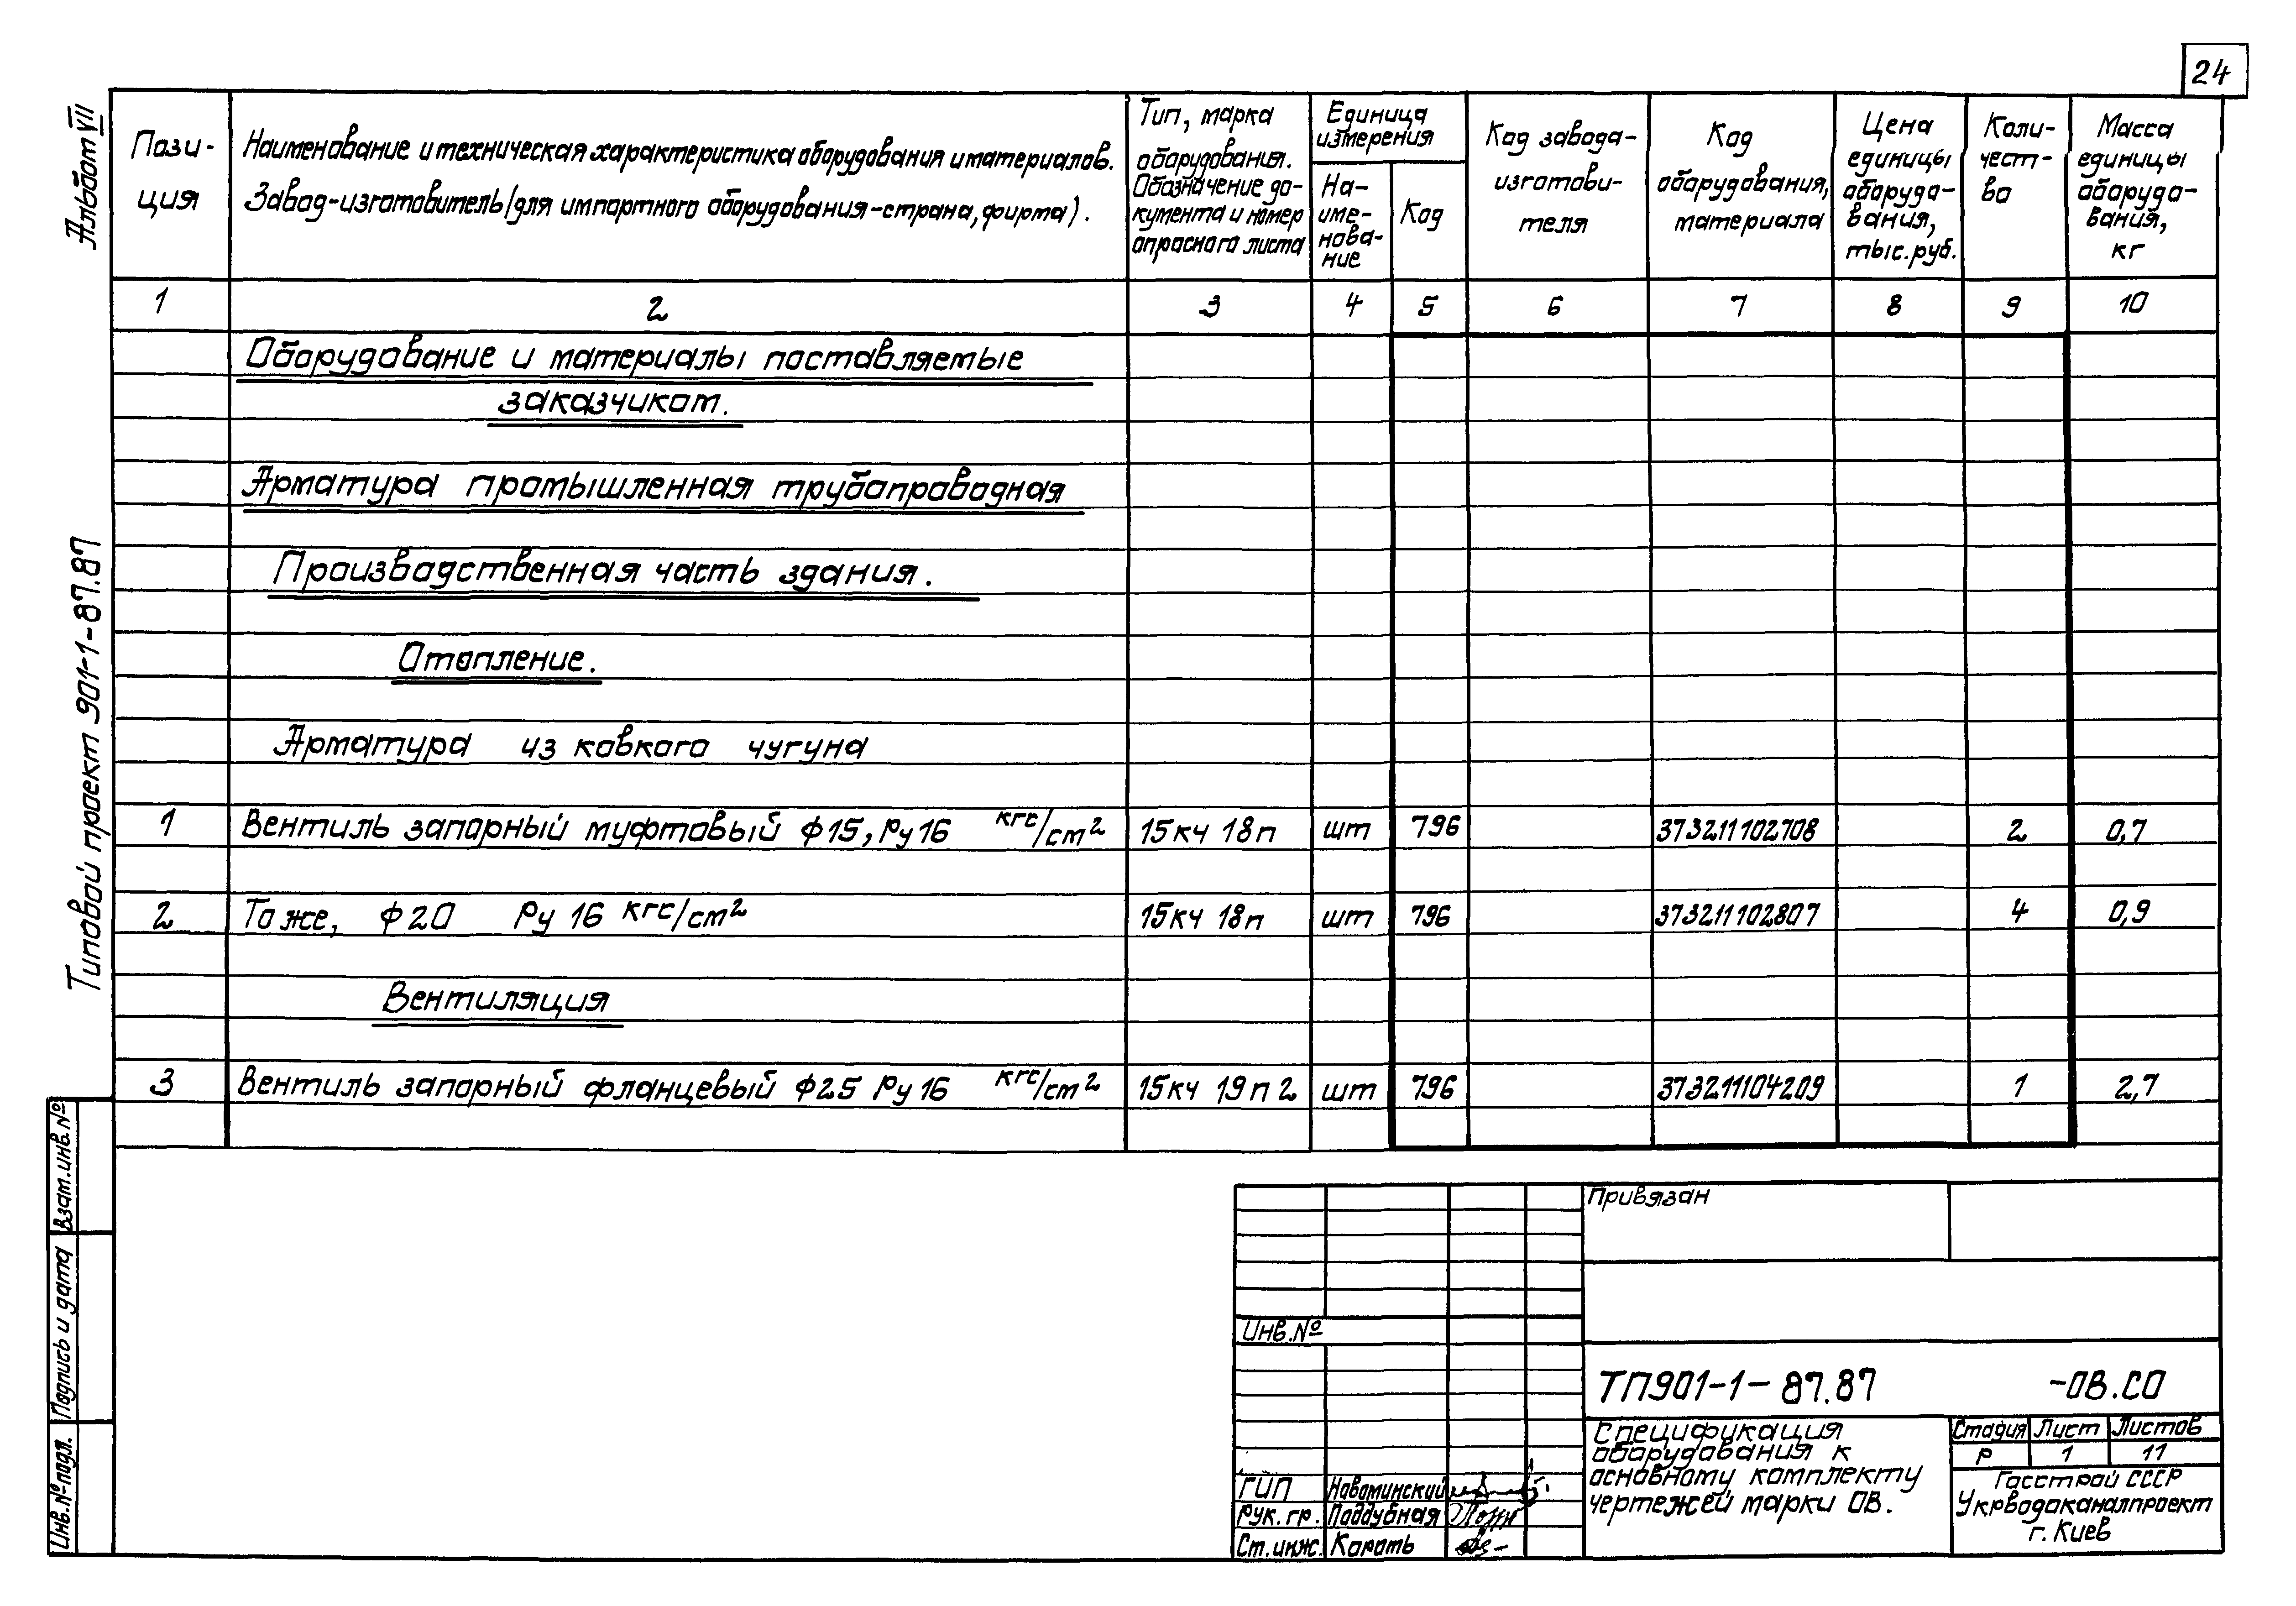 24
Альбом VII
Типовой проект 901-1-87.87
Пози-
ция
Наименование и техническая характеристика оборудования и материалов.
Завод-изготовитель (для импортного оборудования-страна, фирма).
Тип, марка
оборудования.
Обозначение до-
кумента и номер
опросного листа
Единица
измерения
На-
име-
нова-
ние
Код
Код завода-
изготови-
теля
Код
оборудования,
материала
Цена
единицы
оборудо-
вания,
тыс.руб.
Коли-
чест-
во
Масса
единицы
оборудо-
вания,
кг
1 2 3 4 5 6 7 8 9 10
Оборудование и материалы поставляемые
заказчиком.
Арматура промышленная трубопроводная
Производственная часть здания.
Отопление.
Арматура из ковкого чугуна
1 Вентиль запорный муфтовый ф15, Ру16 кгс/см2 15кч 18п шт 796 373211102708 2 0,7
2 То же, ф20 Ру 16 кгс/см2 15кч 18п шт 796 373211102807 4 0,9
Вентиляция
3 Вентиль запорный фланцевый ф25 Ру16 кгс/см2 15кч 19п2 шт 796 373211104209 1 2,7
Взам.инв.№
Подпись и дата
Инв.№подл.
Привязан
Инв.№
ТП901-1-87.87 -ОВ.СО
Спецификация
оборудования к
основному комплекту
чертежей марки ОВ.
Стадия Лист Листов
Р 1 11
Госстрой СССР
Укрводоканалпроект
г. Киев
ГИП Новоминский
Рук.гр. Поддубная
Ст.инж. Короть